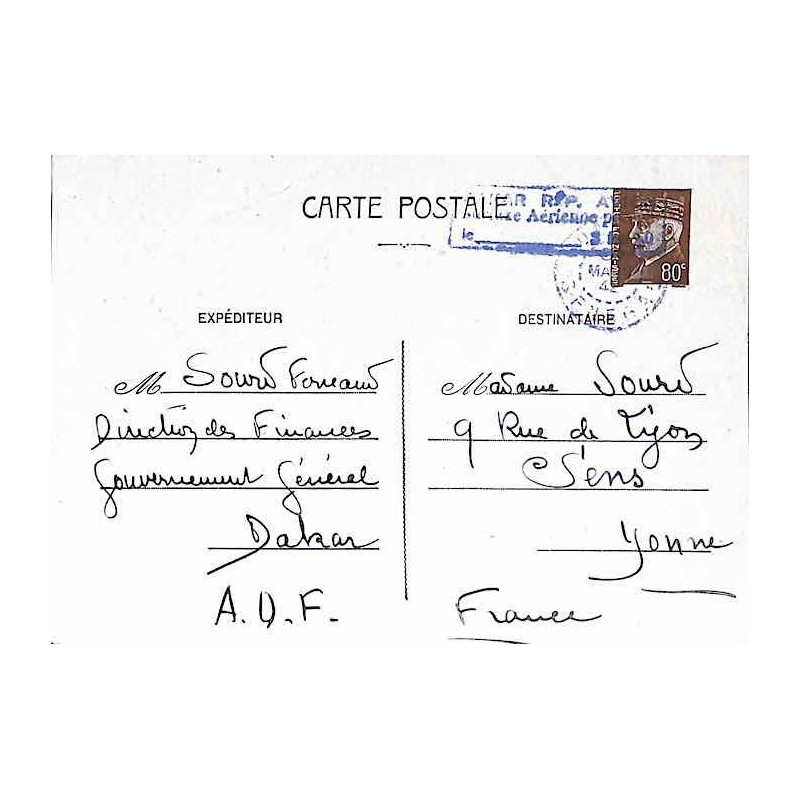 CARTE POSTALE
RÉP. AV
Aérienne p
le
80c
EXPÉDITEUR
M Sourd Fernand
Direction des Finances
Gouvernement Général
Dakar
A.O.F.
DESTINATAIRE
Madame Sourd
9 Rue de Lyon
Sens
Yonne
France